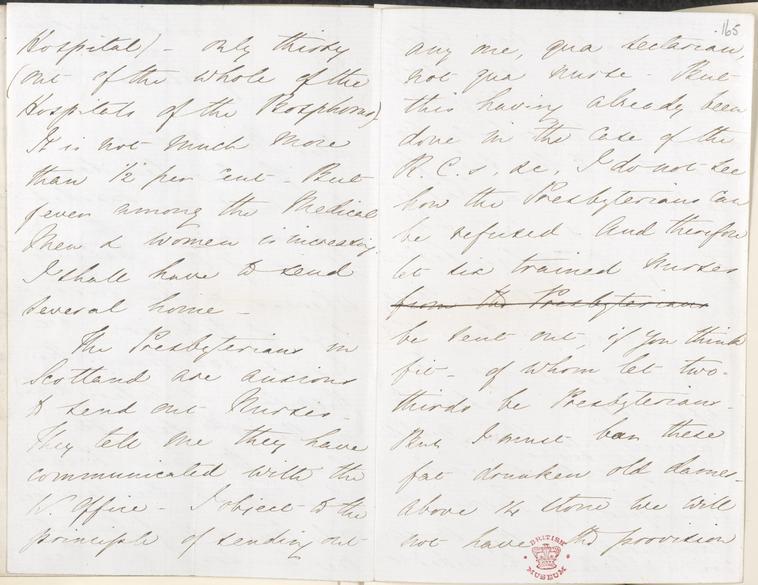 Hospital) - only thirty
(out of the whole of the
Hospitals of the Bosphorus)
It is not much more
than 1/2 per cent - But
fever among the Medical
Men & Women is increasing.
I shall have to send
several home -
The Presbyterians in
Scotland are anxious
to send out Nurses -
They tell me they have
communicated with the
W. Office - I object to the
principle of sending out
165
any one, qua sectarian,
not qua nurse - But
this having already been
done in the case of the
R. C.s, &c, I do not see
how the Presbyterians can
be refused - And therefore
let six trained Nurses
from the Presbyterians
be sent out, if you think
fit - of whom let two-
thirds be Presbyterians -
But I must bar these
fat drunken old dames -
above 14 stone we will
not have - the provision
BRITISH MUSEUM